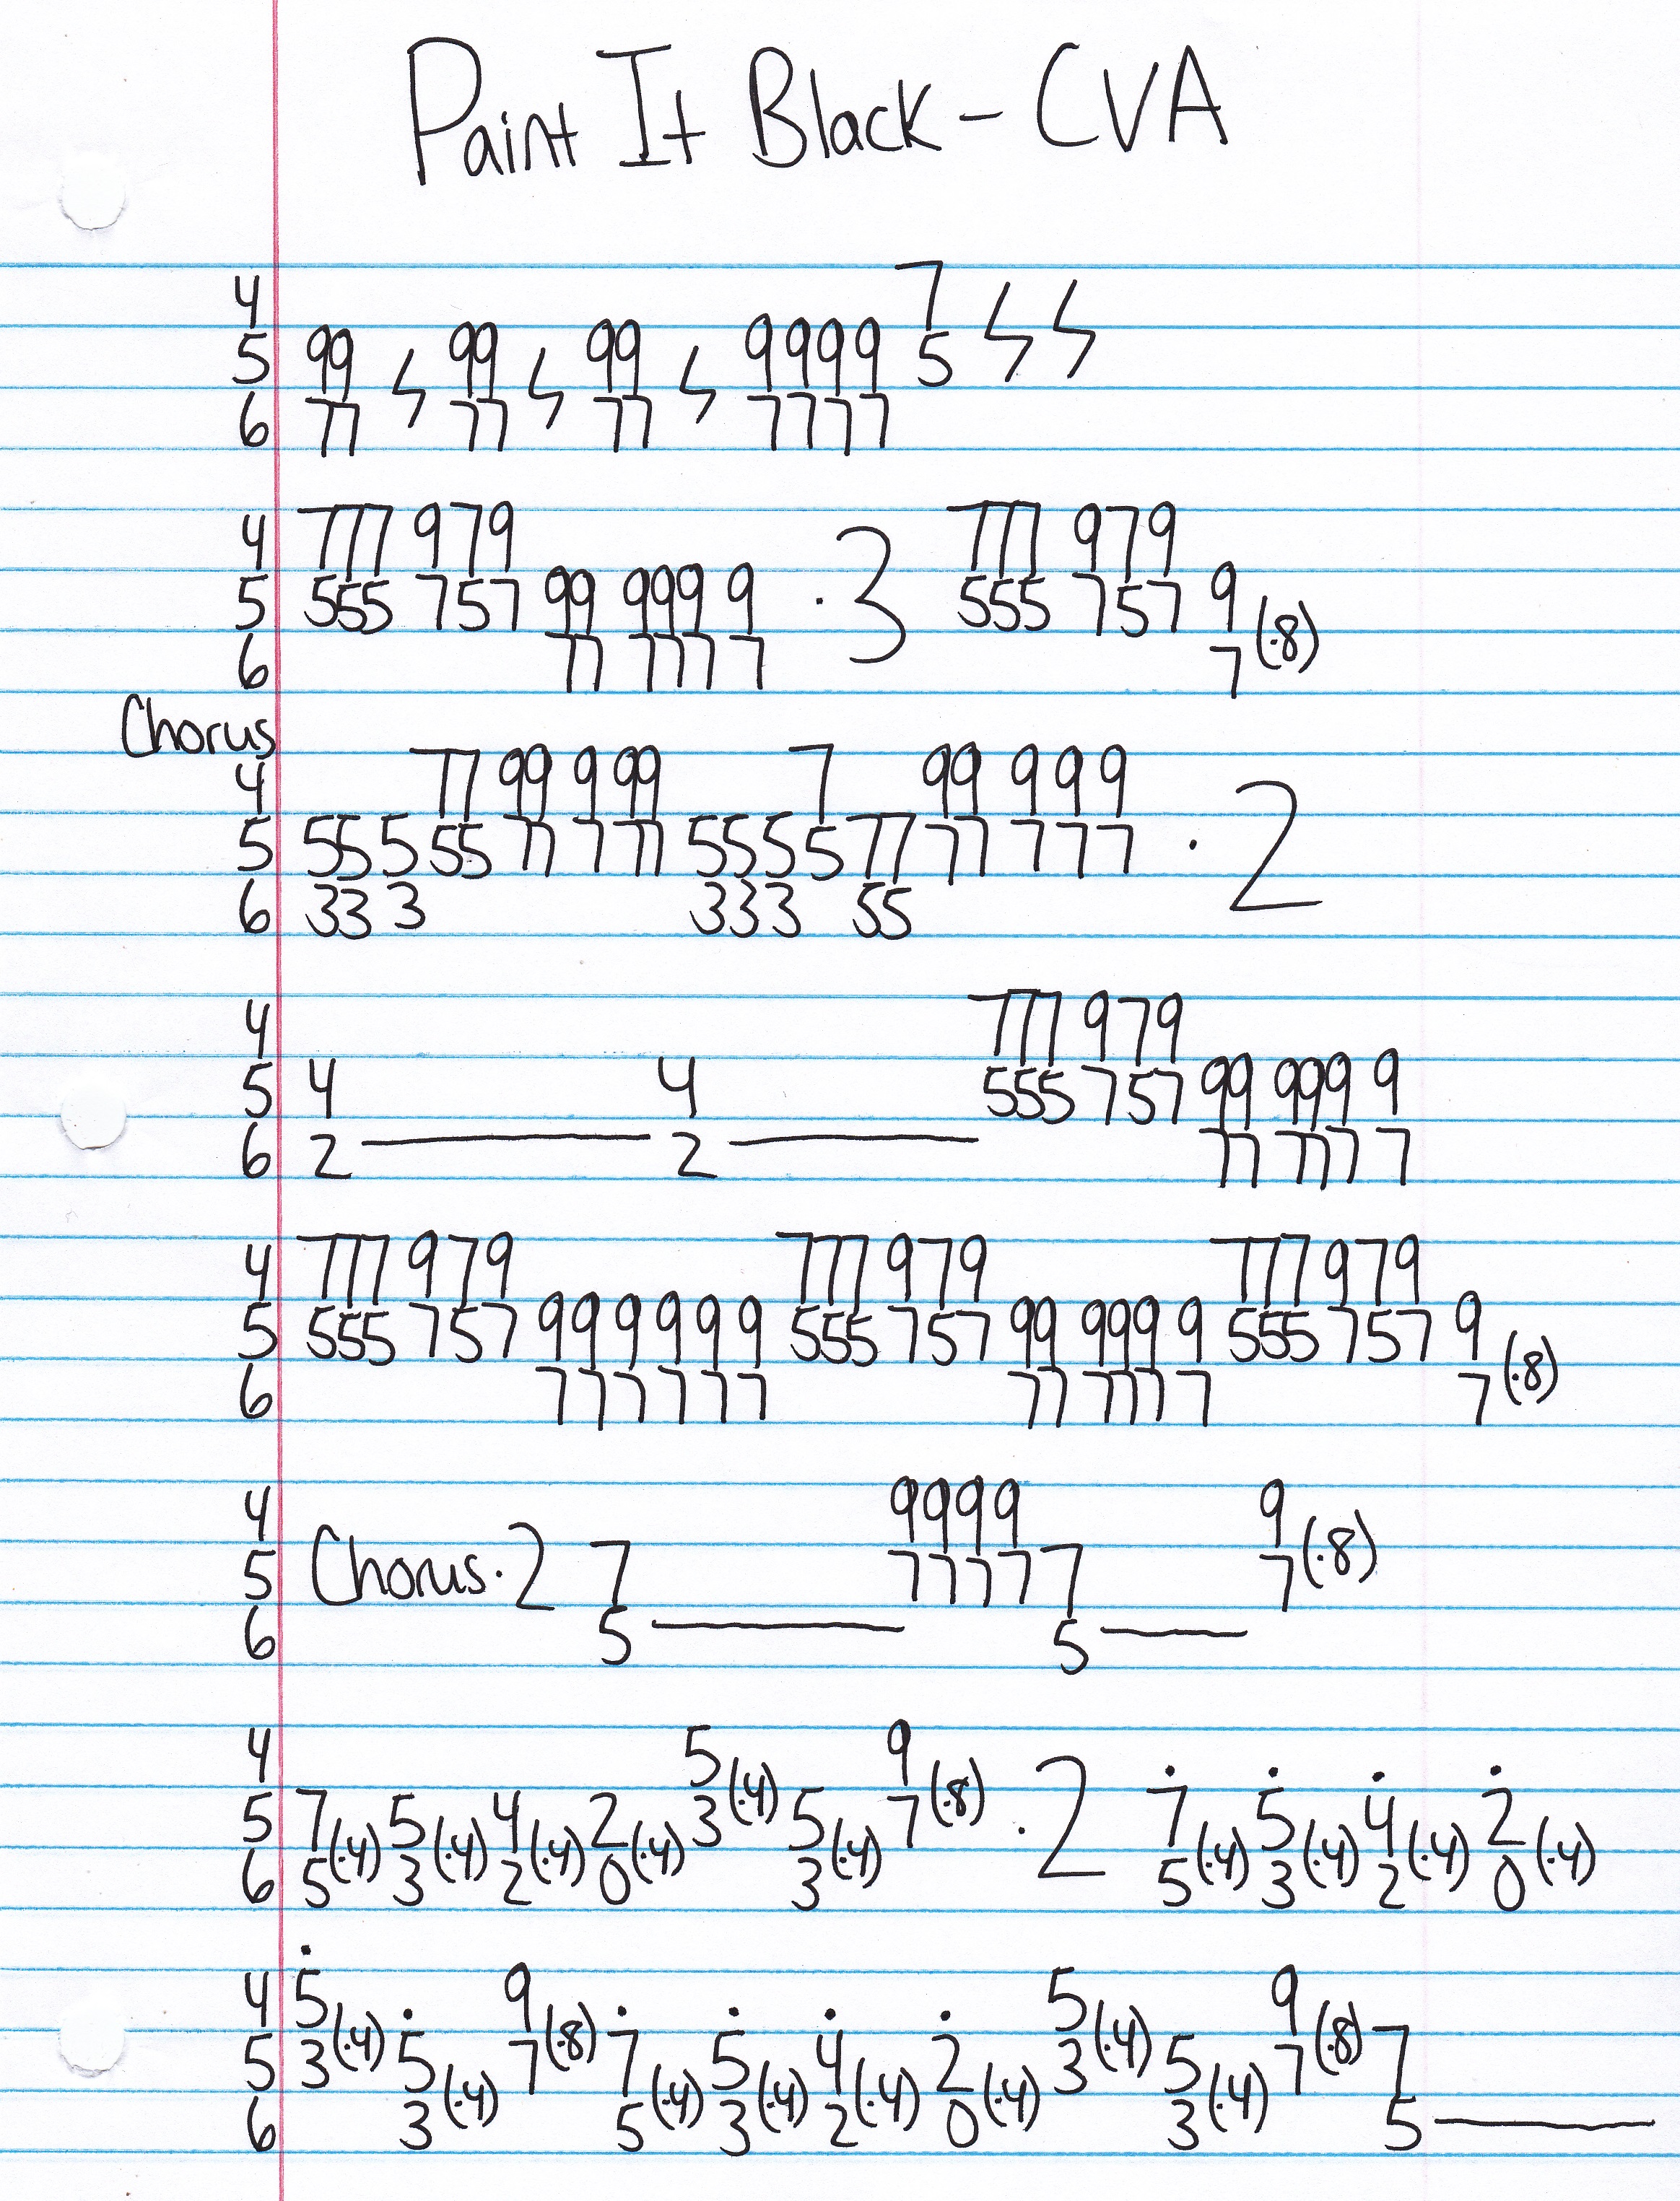 Paint It Black - CVA
7
4
5 99 ϟ 99 ϟ 99 ϟ 9999 5 ϟ ϟ
6 77 77 77 7777
4 777 979 777 979
5 555 757 99 999 9 ·3 555 757 9
6 77 777 7 7 (·8)
Chorus
4 77 99 9 99 7 99 9 9 9
5 55 5 55 77 7 77 555 5 77 77 7 7 7 ·2
6 33 3 333 55
4 777 979
5 4 4 555 757 99 999 9
6 2 —— 2 —— 77 777 7
4 777 979 777 979 777 979
5 555 757 99 9 9 9 9 555 757 99 999 9 555 757 9
6 77 7 7 7 7 77 777 7 7 (·8)
4 9999 9
5 Chorus ·2 7 7777 7 7 (·8)
6 5 —— 5 ——
4 5 9
5 7 5 4 2 3 (·4) 5 7 (·8) ·2 7̇ 5̇ 4̇ 2̇
6 5 (·4) 3 (·4) 2 (·4) 0 (·4) 3 (·4) 5 (·4) 3 (·4) 2 (·4) 0 (·4)
4 5̇ 9 5 9
5 3 (·4) 5̇ 7 (·8) 7̇ 5̇ 4̇ 2̇ 3 (·4) 5 7 (·8) 7
6 3 (·4) 5 (·4) 3 (·4) 2 (·4) 0 (·4) 3 (·4) 5 ——